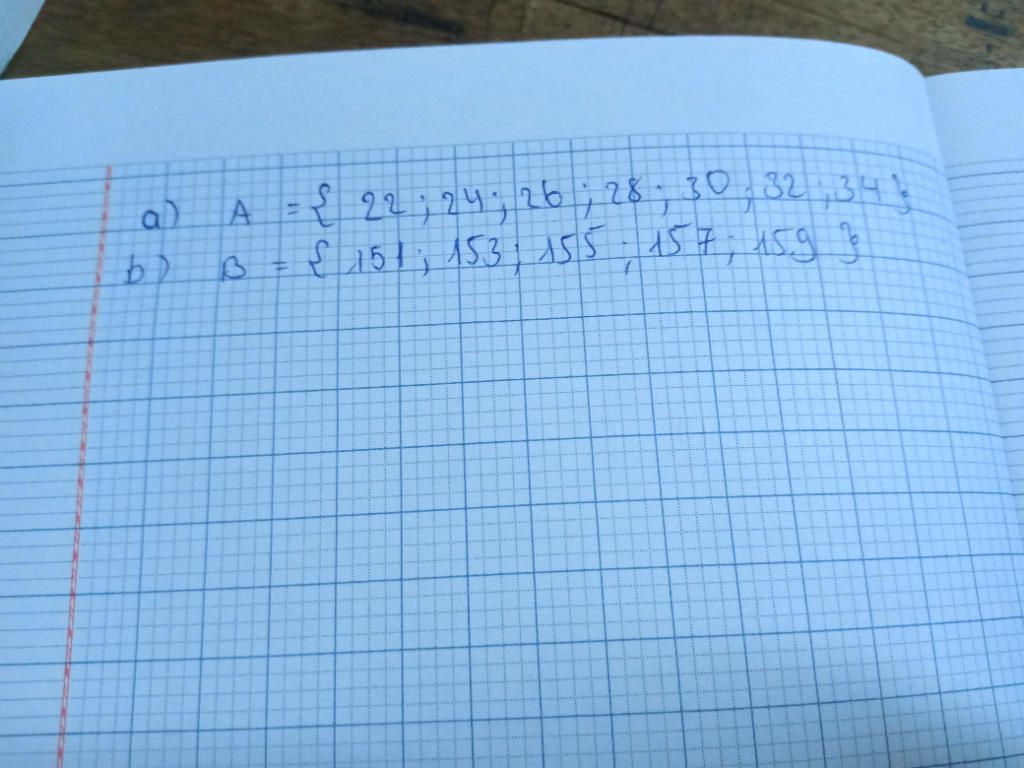 a) A = { 22 ; 24 ; 26 ; 28 ; 30 ; 32 ; 34 }
b) B = { 151 ; 153 ; 155 ; 157 ; 159 }